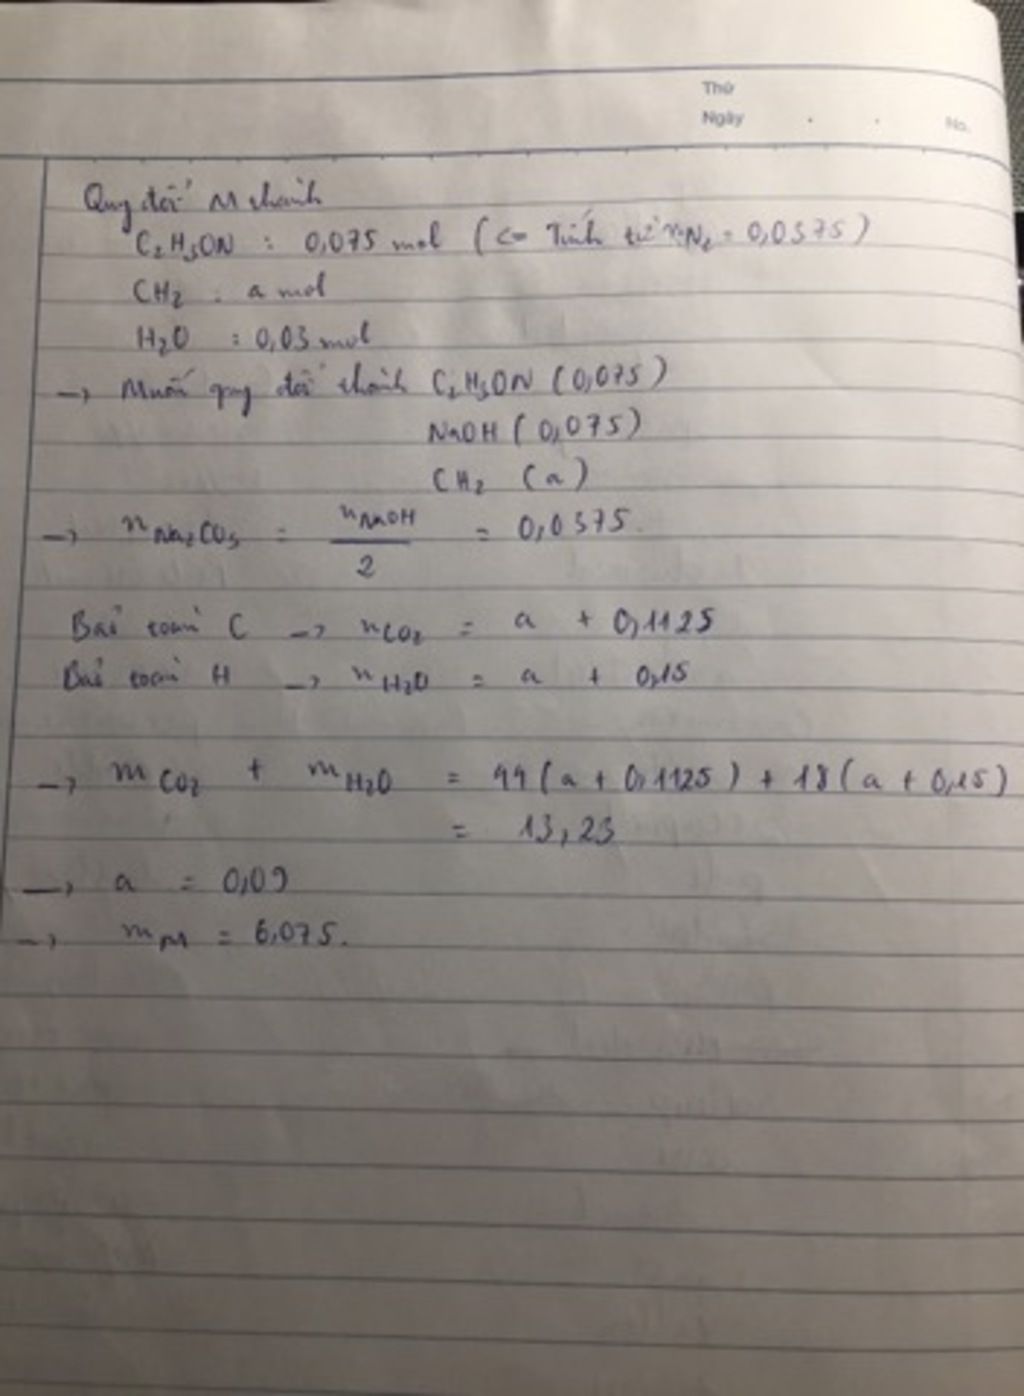 Thứ
Ngày . . No.
Quy đổi M thành
C₂H₃ON : 0,075 mol (<= Tính từ nN₂ = 0,0375)
CH₂ : a mol
H₂O : 0,03 mol
→ Muối quy đổi thành C₂H₃ON (0,075)
NaOH (0,075)
CH₂ (a)
→ nNa₂CO₃ = nNaOH / 2 = 0,0375.
Bảo toàn C → nCO₂ = a + 0,1125
Bảo toàn H → nH₂O = a + 0,15
→ mCO₂ + mH₂O = 44(a + 0,1125) + 18(a + 0,15)
= 13,23
→ a = 0,09
→ mM = 6,075.